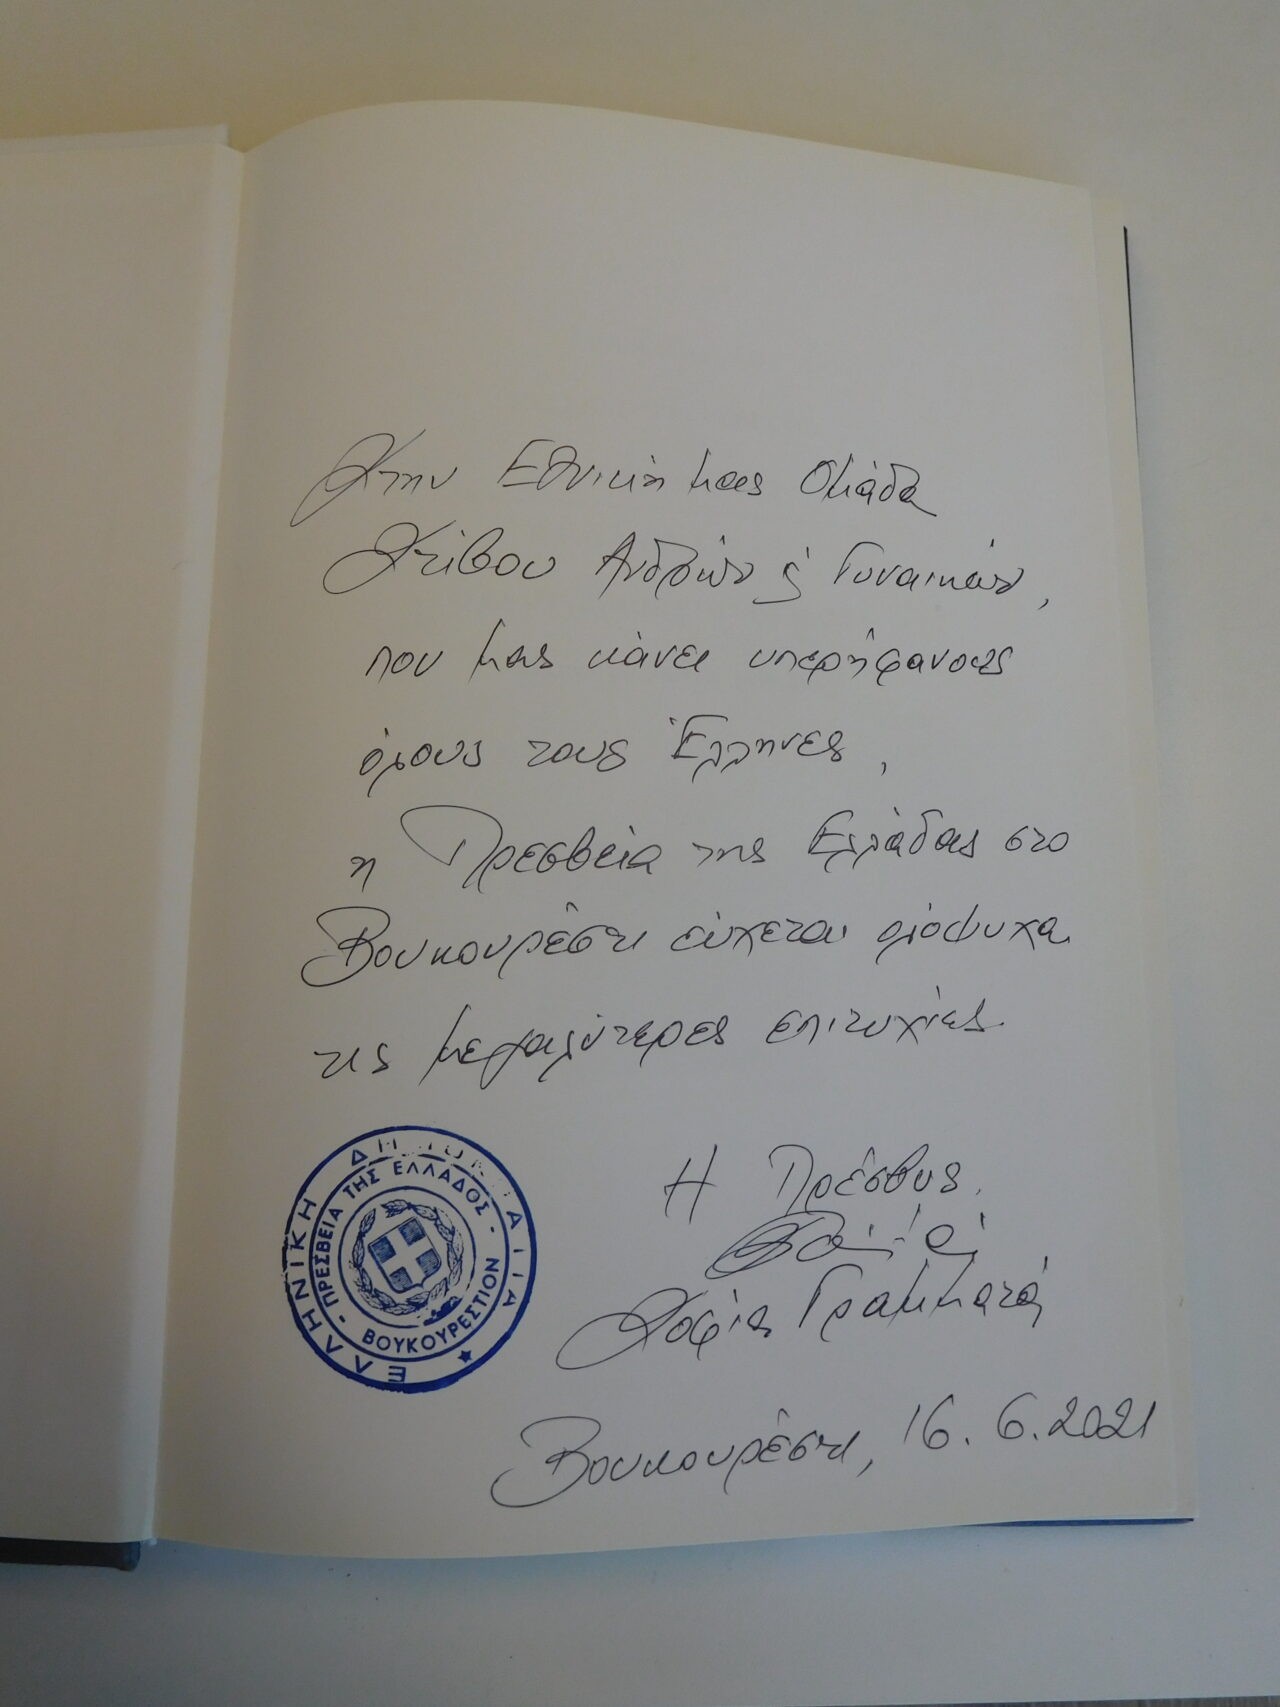 Στην Εθνική μας Ομάδα
Στίβου Ανδρών & Γυναικών,
που μας κάνει υπερήφανους
όλους τους Έλληνες,
η Πρεσβεία της Ελλάδας στο
Βουκουρέστι εύχεται ολόψυχα
τις μεγαλύτερες επιτυχίες.
Η Πρέσβυς,
Σοφία Γραμματά
Βουκουρέστι, 16.6.2021
ΕΛΛΗΝΙΚΗ
ΠΡΕΣΒΕΙΑ ΤΗΣ ΕΛΛΑΔΟΣ -
ΒΟΥΚΟΥΡΕΣΤΙΟΝ -